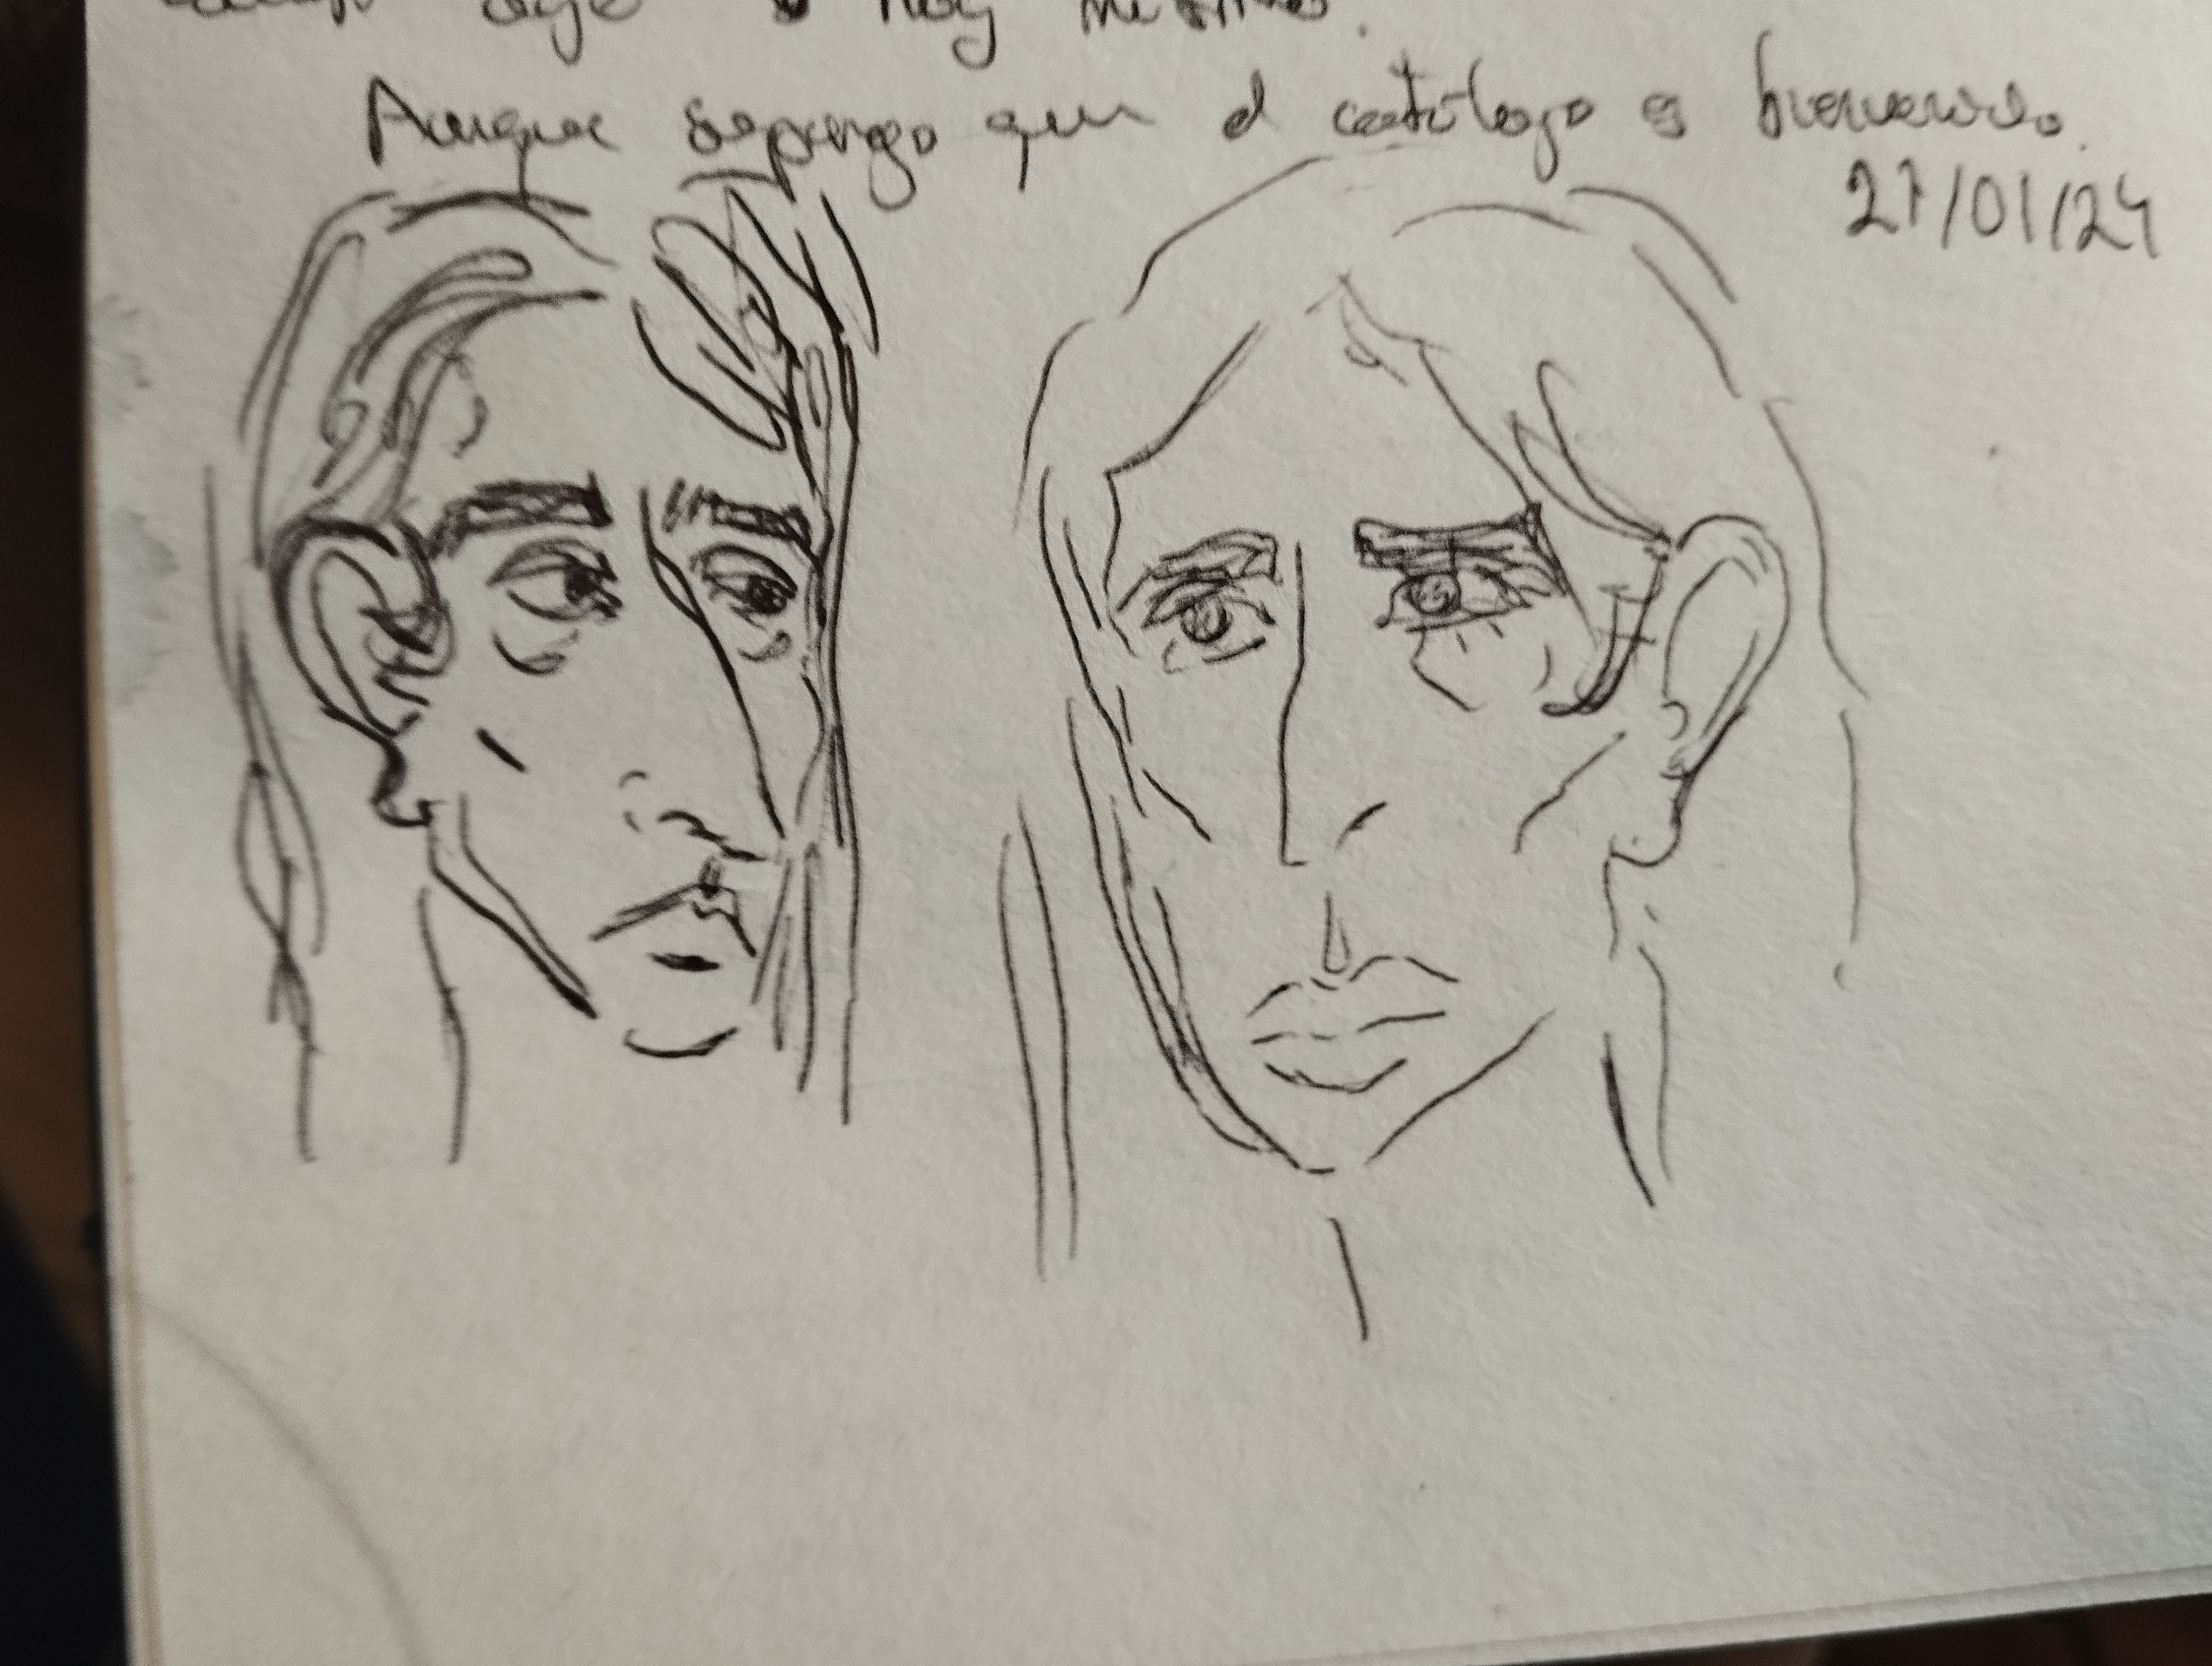 hoy
Aunque supongo que el catálogo es bienvenido.
27/01/24